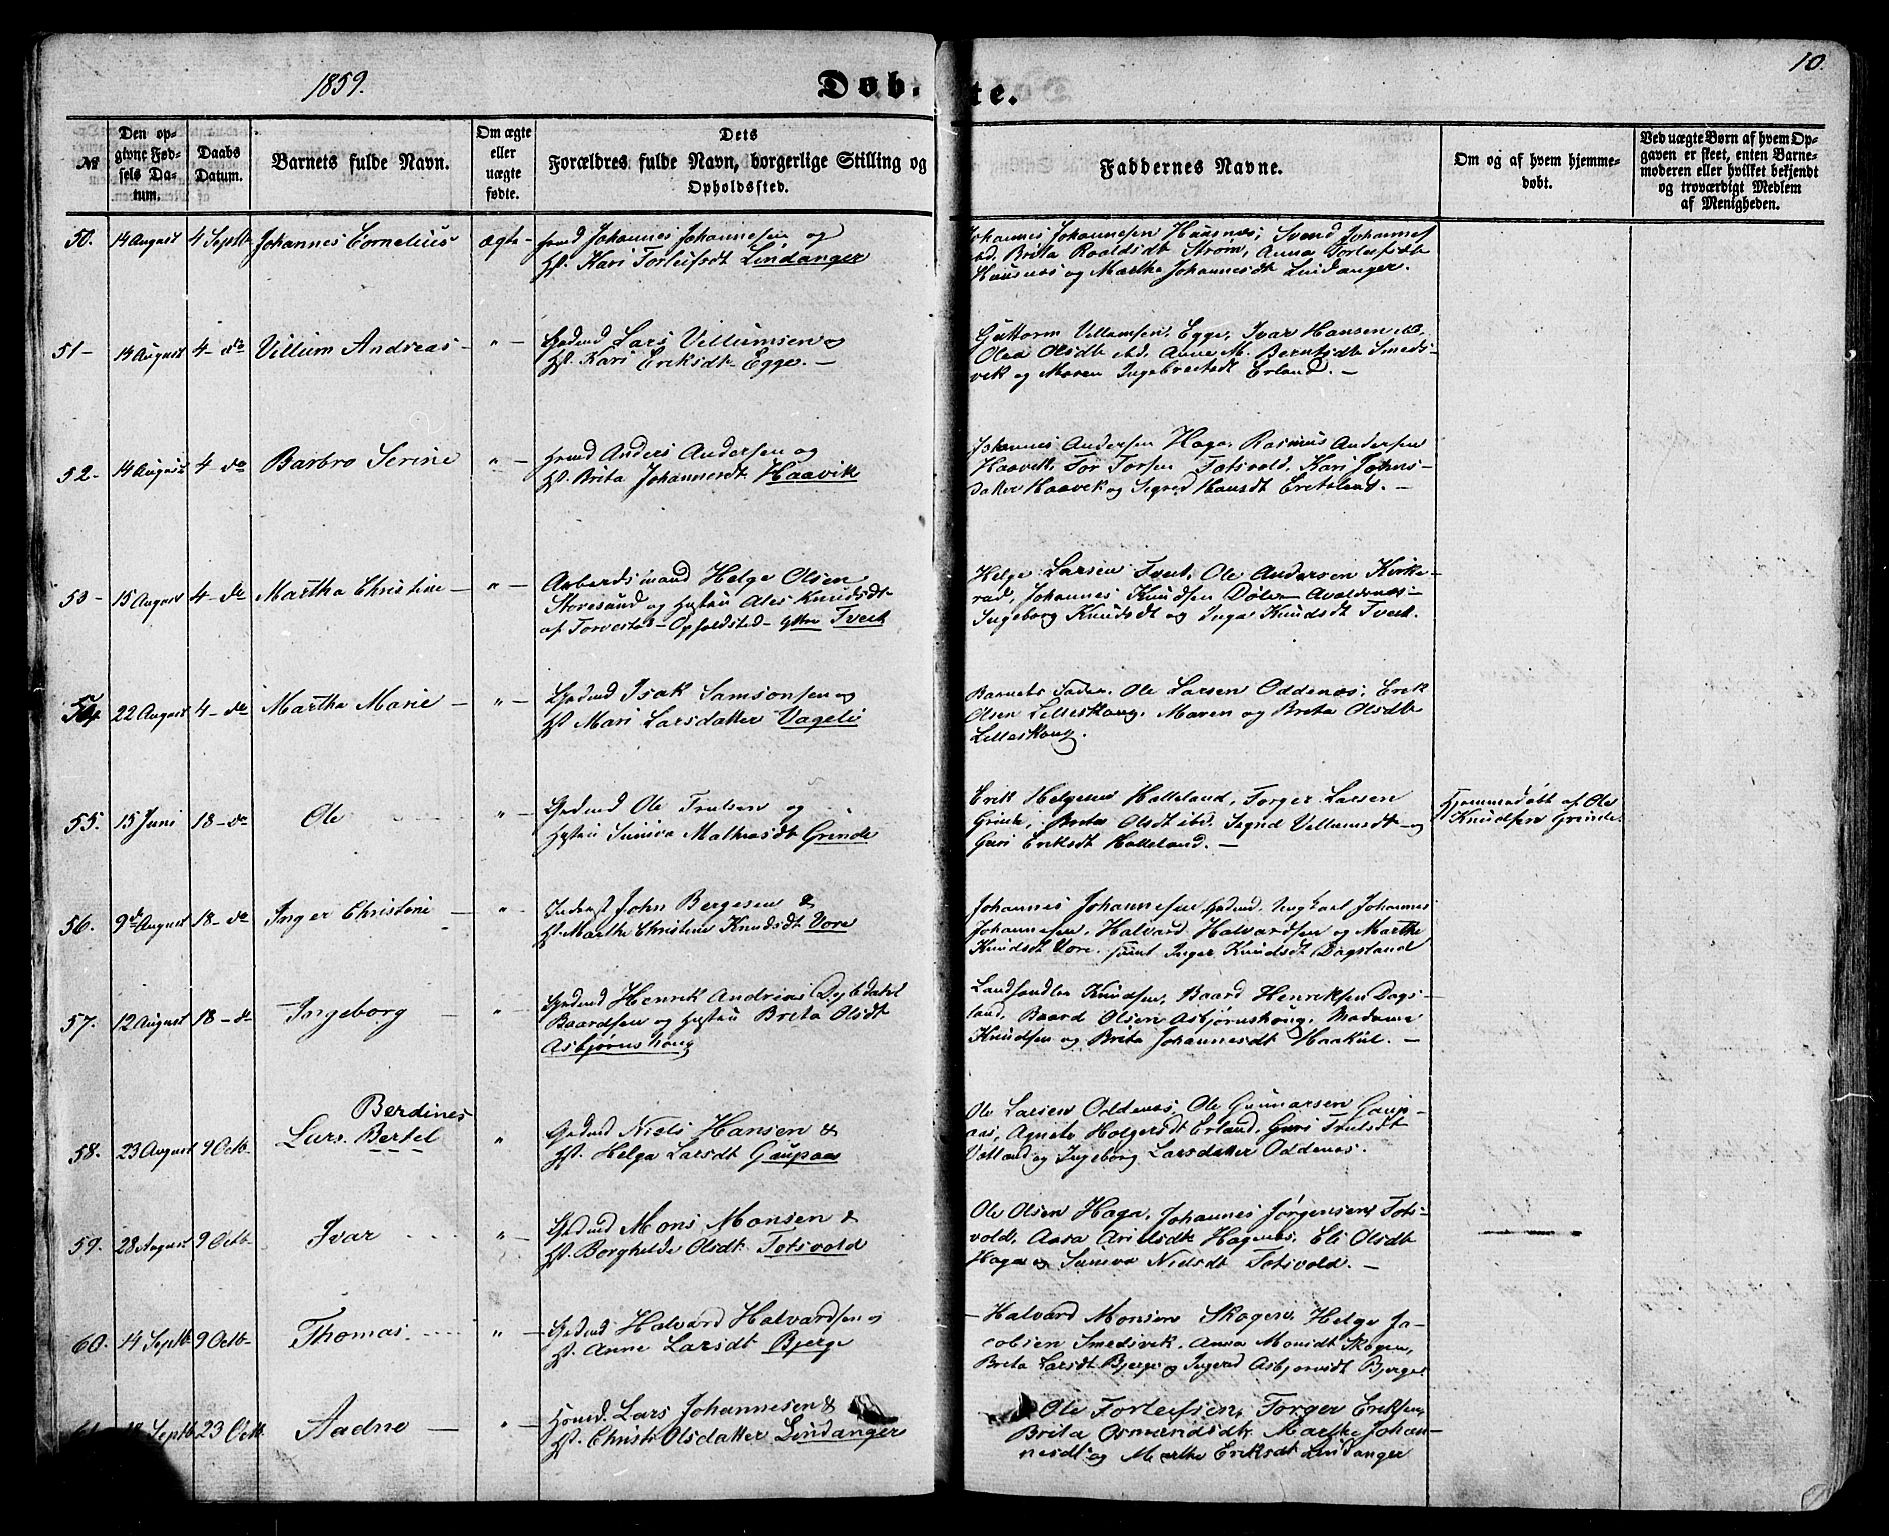 1859.
Døb-
te.
10.
№
Den op-
givne Fød-
sels Da-
tum.
Daabs
Datum.
Barnets fulde Navn.
Om ægte
eller
uægte
fødte.
Dets
Forældres fulde Navn, borgerlige Stilling og
Opholdssted.
Faddernes Navne.
Om og af hvem hjemme-
døbt.
Ved uægte Børn af hvem Op-
gaven er skeet, enten Barne-
moderen eller hvilket bekjendt
og troværdigt Medlem
af Menigheden.
50. 14 August 4 Septb Johannes Cornelius ægte
Johannes Johannesen og
Hst. Kari Torleifsdt Lindanger
Johannes Johannesen Haasnes, Svend Johannes
ibd. Brita Roaldsdt Strøm, Anna Torleifsdt
Haasnes og Martha Johannesdt Lindanger.
51- 14 August 4- do Villum Andreas - " -
Gbdmd Lars Villumsen og
Hst. Kari Eriksdt Egge. -
Guttorm Villumsen Egge, Ivar Hansen ibd.
Olea Olsdt ibd. Anne M. Berntsdt Smeds-
vik og Maren Ingebretsdt Erland. -
52- 14 August 4- do Barbro Serine " -
Hmd Anders Andersen og
Hst. Brita Johannesdt Haavik
Johannes Andersen Haga, Rasmus Andersen
Haavik, Tor Torsen Totsvold, Kari Johns-
datter Haavik og Sigrid Hansdt Eretsland. -
53- 15 August 4- do Martha Christine - " -
Arbeidsmand Helge Olsen
Storesund og Hustru Ales Knudsdt-
af Torvestad - Opholdsted - Ytre Tveit
Helge Larsen Tveit, Ole Andersen Kirke-
rad, Johannes Knudsen Døle - Avaldsnes -
Ingeborg Knudsdt og Inga Knudsdt Tveit.
54 22 August 4- do Martha Marie - " -
Gbdmd Isak Samsonsen og
Hst. Mari Larsdatter Vageli
Barnets Fader, Ole Larsen Oddenes, Erik
Olsen Lilleskoug, Maren og Brita Olsdt
Lilleskoug.
55. 15 Juni 18- do Ole " -
Gbdmd Ole Trulsen og
Hustru Suniva Mathiasdt Grinde
Erik Helgesen Halleland, Torger Larsen
Grinde, Brita Olsdt ibd. Sigrid Villumsdt og
Guri Eriksdt Halleland. -
Hjemmedøbt af Ole
Knudsen Grinde.
56. 9de August 18- do Inger Christine - " -
Inderst John Bergesen &
Hst. Martha Christine Knudsdt Vore
Johannes Johannesen Gbdmd. Ungkarl Johannes
Johannesen, Halvard Halvardsen og Marthe
Knudsdt Vore. samt Inger Knudsdt Dagsland
57. 12 August 18- do Ingeborg - " -
Gbdmd Henrik Andreas Dybdahl
Baardsen og Hustru Brita Olsdt
Asbjørnskoug
Landhandler Knudsen, Baard Henriksen Dags-
land, Baard Olsen Asbjørnskoug, Madame
Knudsen og Brita Johannesdt Haakul. -
58. 23 August 9 Octb Lars Bertel Berdines "
Gbdmd Niels Hansen &
Hst. Helga Larsdt Gaupaas
Ole Larsen Oddenes, Ole Gunnarsen Gaup-
aas, Agnete Holgersdt Erland, Guri Trulsdt
Vatland og Ingeborg Larsdatter Oddenes.
59. 28 August 9 Octb Ivar " -
Gbdmd Mons Monsen &
Hst. Borghilde Olsdt Totsvold
Ole Olsen Haga, Johannes Jørgensen Tots-
vold, Aasa Arildsdt Hagenes, Eli Olsdt
Haga og Suniva Nielsdt Totsvold. -
60. 14 Septb 9 Octb Thomas " -
Gbdmd Halvard Halvardsen og
Hst. Anne Larsdt Bjerge
Halvard Monsen Skogen, Helge Ja-
cobsen Smedsvik, Anna Monsdt Skogen,
Brita Larsdt Bjerge og Ingerid Asbjørnsdt Bjerge
61 18 Septb 23 Octb. Aadne - " -
Hmd. Lars Johannesen &
Hst. Christi Olsdatter Lindanger
Ole Torleifsen, Torger Eriksen,
Brita Osmundsdt, Marthe Johan-
nesdt og Marthe Eriksdt Lindanger